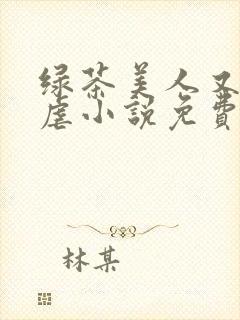 绿茶美人又
虐小説免費
林某